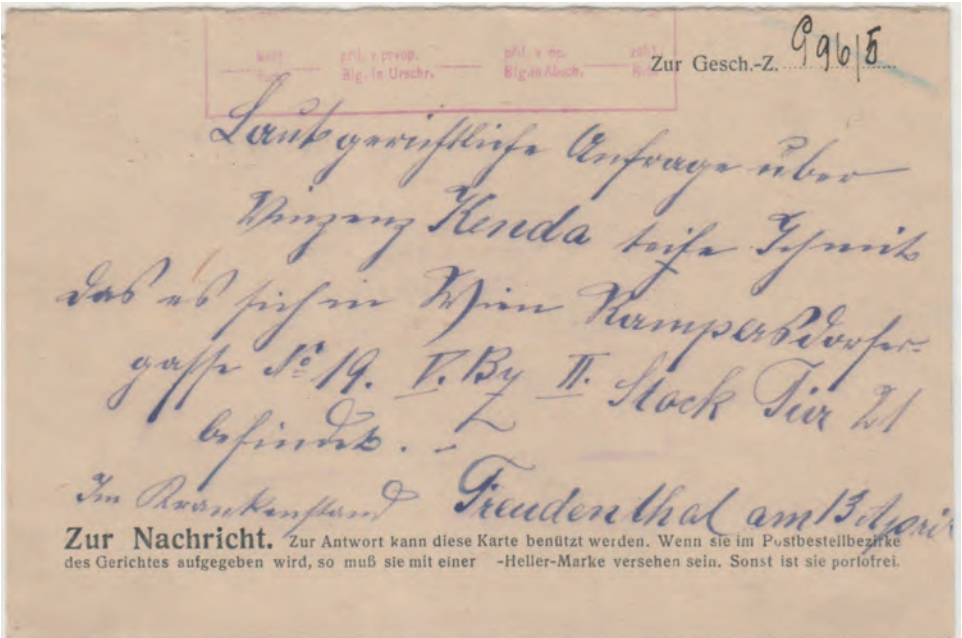 präs. v. prvop. präs. v. op. zahl.
Blg. in Urschr. Blg. in Absch.
Zur Gesch.-Z. P 96/5
Laut gerichtliche Anfrage über
Vinzenz Kenda teile Ich mit
das es sich in Wien Rampersdorfer-
gasse No 19. V. Bz II. Stock Tür 21
befindet. –
Im Krankenstand Freudenthal am 13 April
Zur Nachricht. Zur Antwort kann diese Karte benützt werden. Wenn sie im Postbestellbezirke
des Gerichtes aufgegeben wird, so muß sie mit einer -Heller-Marke versehen sein. Sonst ist sie portofrei.